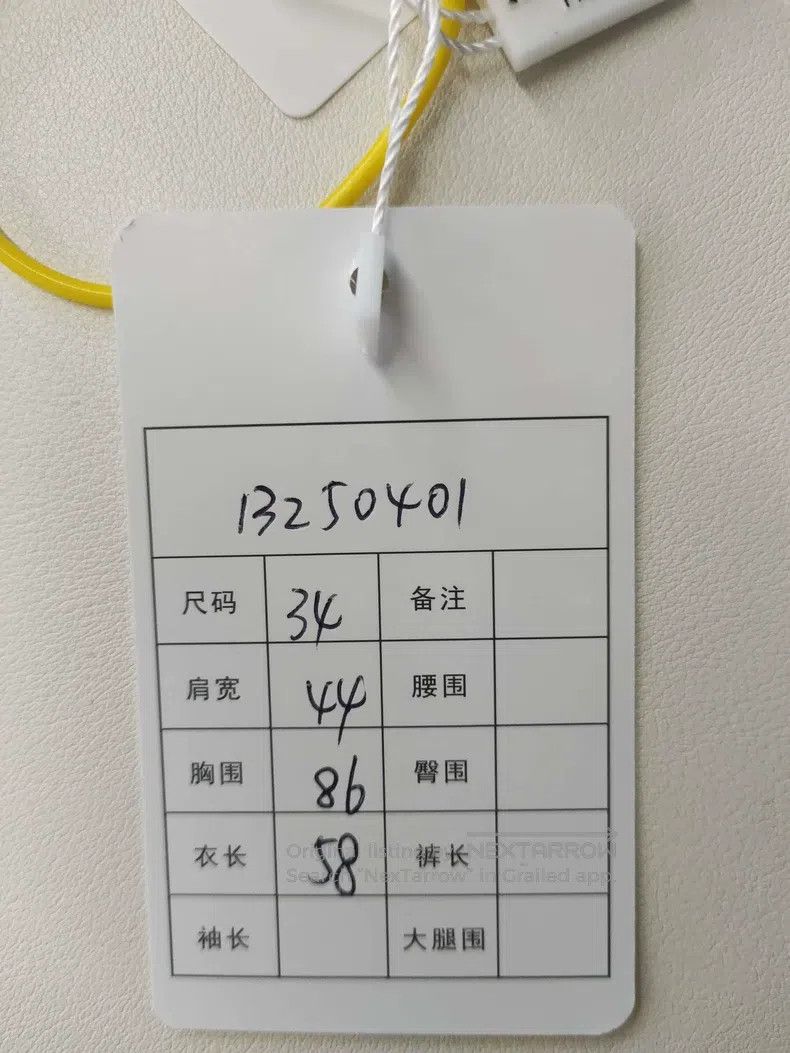 13250401
尺码 34 备注
肩宽 44 腰围
胸围 86 臀围
衣长 58 裤长
Original listing by NEXTARROW
Search "NexTarrow" in Grailed app
袖长 大腿围